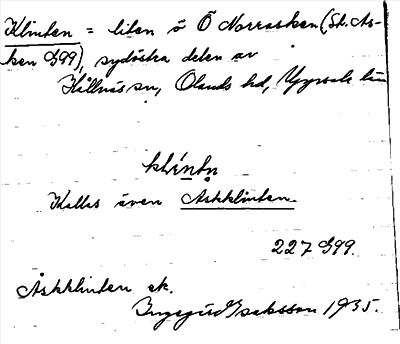 Klinten = liten ö Ö Norrasken (St. As-
ken G99), sydöstra delen av
Hållnäs sn, Olands hd, Uppsala län
klìntn̥
Kallas även Askklinten.
227 G99.
Askklinten ek.
Ingegärd Isaksson 1935.